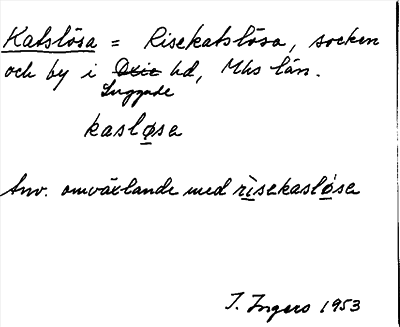 Katslösa = Risekatslösa, socken
och by i Oxie hd, Mhs län.
Luggude
kasløsa
Anv. omväxlande med risekasløsa
I. Ingers 1953